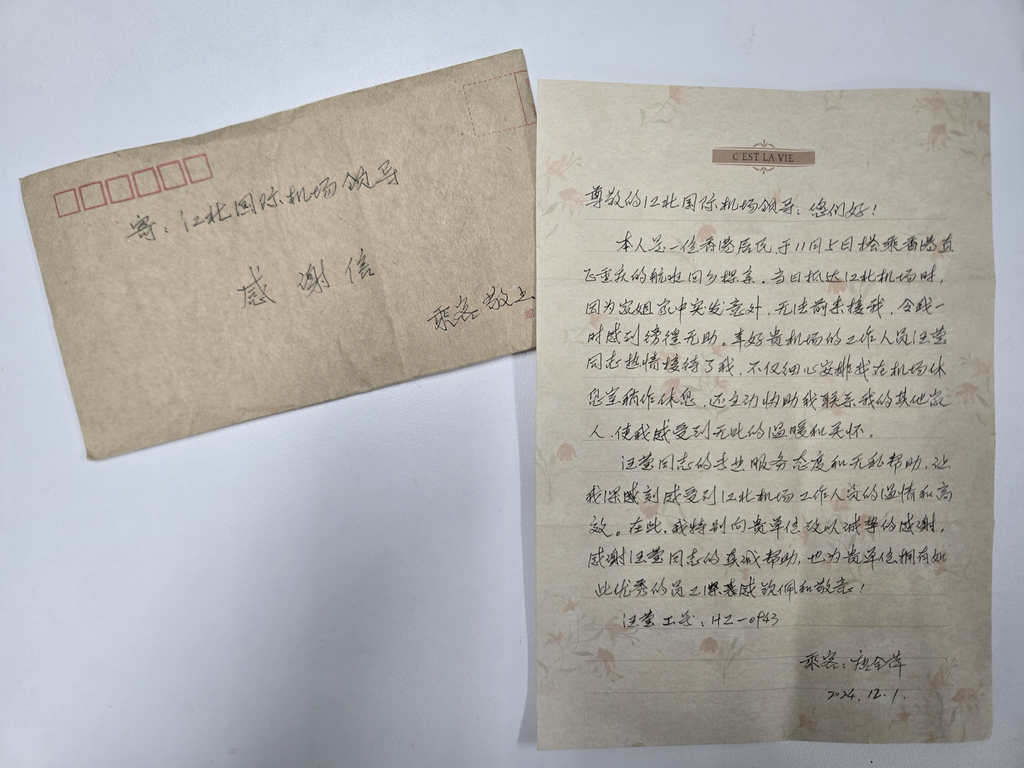 寄：江北国际机场领导
感谢信
乘客敬上
C'EST LA VIE
尊敬的江北国际机场领导：您们好！
本人是一位香港居民，于11月5日搭乘香港直
飞重庆的航班回乡探亲。当日抵达江北机场时，
因为家姐家中突发意外，无法前来接我，令我一
时感到彷徨无助。幸好贵机场的工作人员汪莹
同志热情接待了我，不仅细心安排我在机场休
息室稍作休息，还主动协助我联系我的其他家
人，使我感受到无比的温暖和关怀。
汪莹同志的专业服务态度和无私帮助，让
我深感刻感受到江北机场工作人员的温情和高
效。在此，我特别向贵单位致以诚挚的感谢，
感谢汪莹同志的真诚帮助，也为贵单位拥有如
此优秀的员工深表感钦佩和敬意！
汪莹工号：HZ-0943
乘客：唐全萍
2024.12.1.